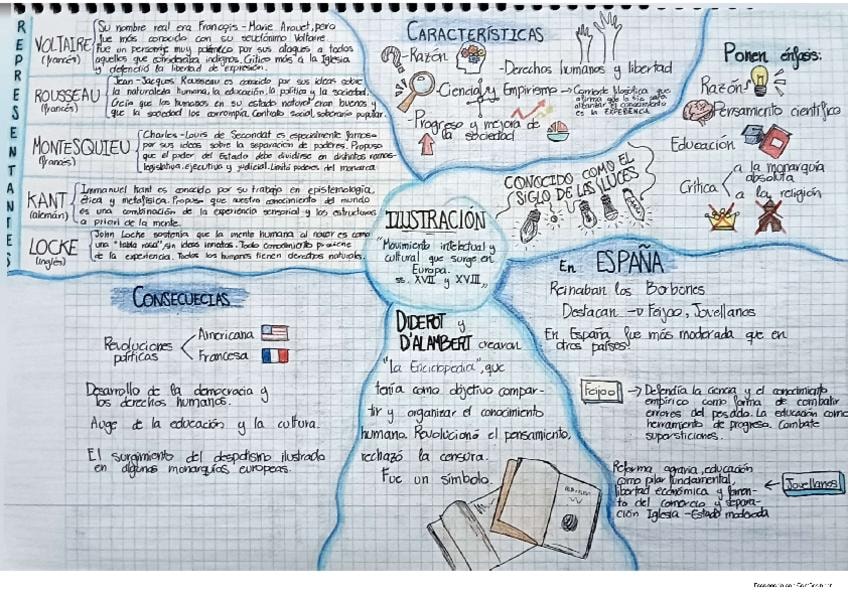 REPRESENTANTES
VOLTAIRE
(francés)
Su nombre real era François-Marie Arouet, pero
fue más conocido con su seudónimo Voltaire.
Fue un personaje muy polémico por sus ataques a todos
aquellos que consideraba indignos. Criticó más a la Iglesia
y defendió la libertad de expresión.
ROUSSEAU
(francés)
Jean-Jacques Rousseau es conocido por sus ideas sobre
la naturaleza humana, la educación, la política y la sociedad.
Decía que los humanos en su estado natural eran buenos y
que la sociedad los corrompía. Contrato social, soberanío popular.
MONTESQUIEU
(francés)
Charles-Louis de Secondat es especialmente famoso
por sus ideas sobre la separación de poderes. Propuso
que el poder del Estado debe dividirse en distintas ramas-
legislativa, ejecutiva y judicial. Limitó poderes del monarca
KANT
(alemán)
Immanuel Kant es conocido por su trabajo en epistemología,
ética y metafísica. Propuso que nuestro conocimiento del mundo
es una combinación de la experiencia sensorial y las estructuras
a priori de la mente.
LOCKE
(inglés)
John Locke sostenía que la mente humana al nacer es como
una "tabla rasa", sin ideas innatas. Todo conocimiento proviene
de la experiencia. Todos los humanos tienen derechos naturales.
CARACTERÍSTICAS
-Razón
-Derechos humanos y libertad
-Ciencia y Empirismo → Corriente filosófica que
afirma que
el conocimiento
es la EXPERIENCIA
-Progreso y mejora de
la sociedad
Ponen énfasis:
Razón
Pensamiento científico
Educación
Crítica
a la monarquía
absoluta
a la religión
CONOCIDO COMO EL
SIGLO DE LAS LUCES
ILUSTRACIÓN
"Movimiento intelectual y
cultural que surge en
Europa.
ss. XVII y XVIII"
En ESPAÑA
Reinaban los Borbones
Destacan → Feijoo, Jovellanos
En España fue más moderada que en
otros países!
Feijoo
→ Defendía la ciencia y el conocimiento
empírico como forma de combatir
errores del pasado. La educación como
herramienta de progreso. Combate
supersticiones.
Reforma agraria, educación
como pilar fundamental,
libertad económica y fomen-
to del comercio y separa-
ción Iglesia-Estado moderada
← Jovellanos
CONSECUECIAS
Revoluciones
políticas
Americana
Francesa
Desarrollo de la democracia y
los derechos humanos.
Auge de la educación y la cultura.
El surgimiento del despotismo ilustrado
en algunas monarquías europeas.
DIDEROT y
D'ALAMBERT crearon
"La Enciclopedia", que
tenía como objetivo compar-
tir y organizar el conocimiento
humano. Revolucionó el pensamiento,
rechazó la censura.
Fue un símbolo.